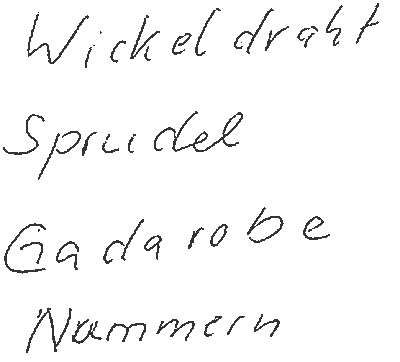 Wickeldraht
Sprudel
Gadarobe
Nummern